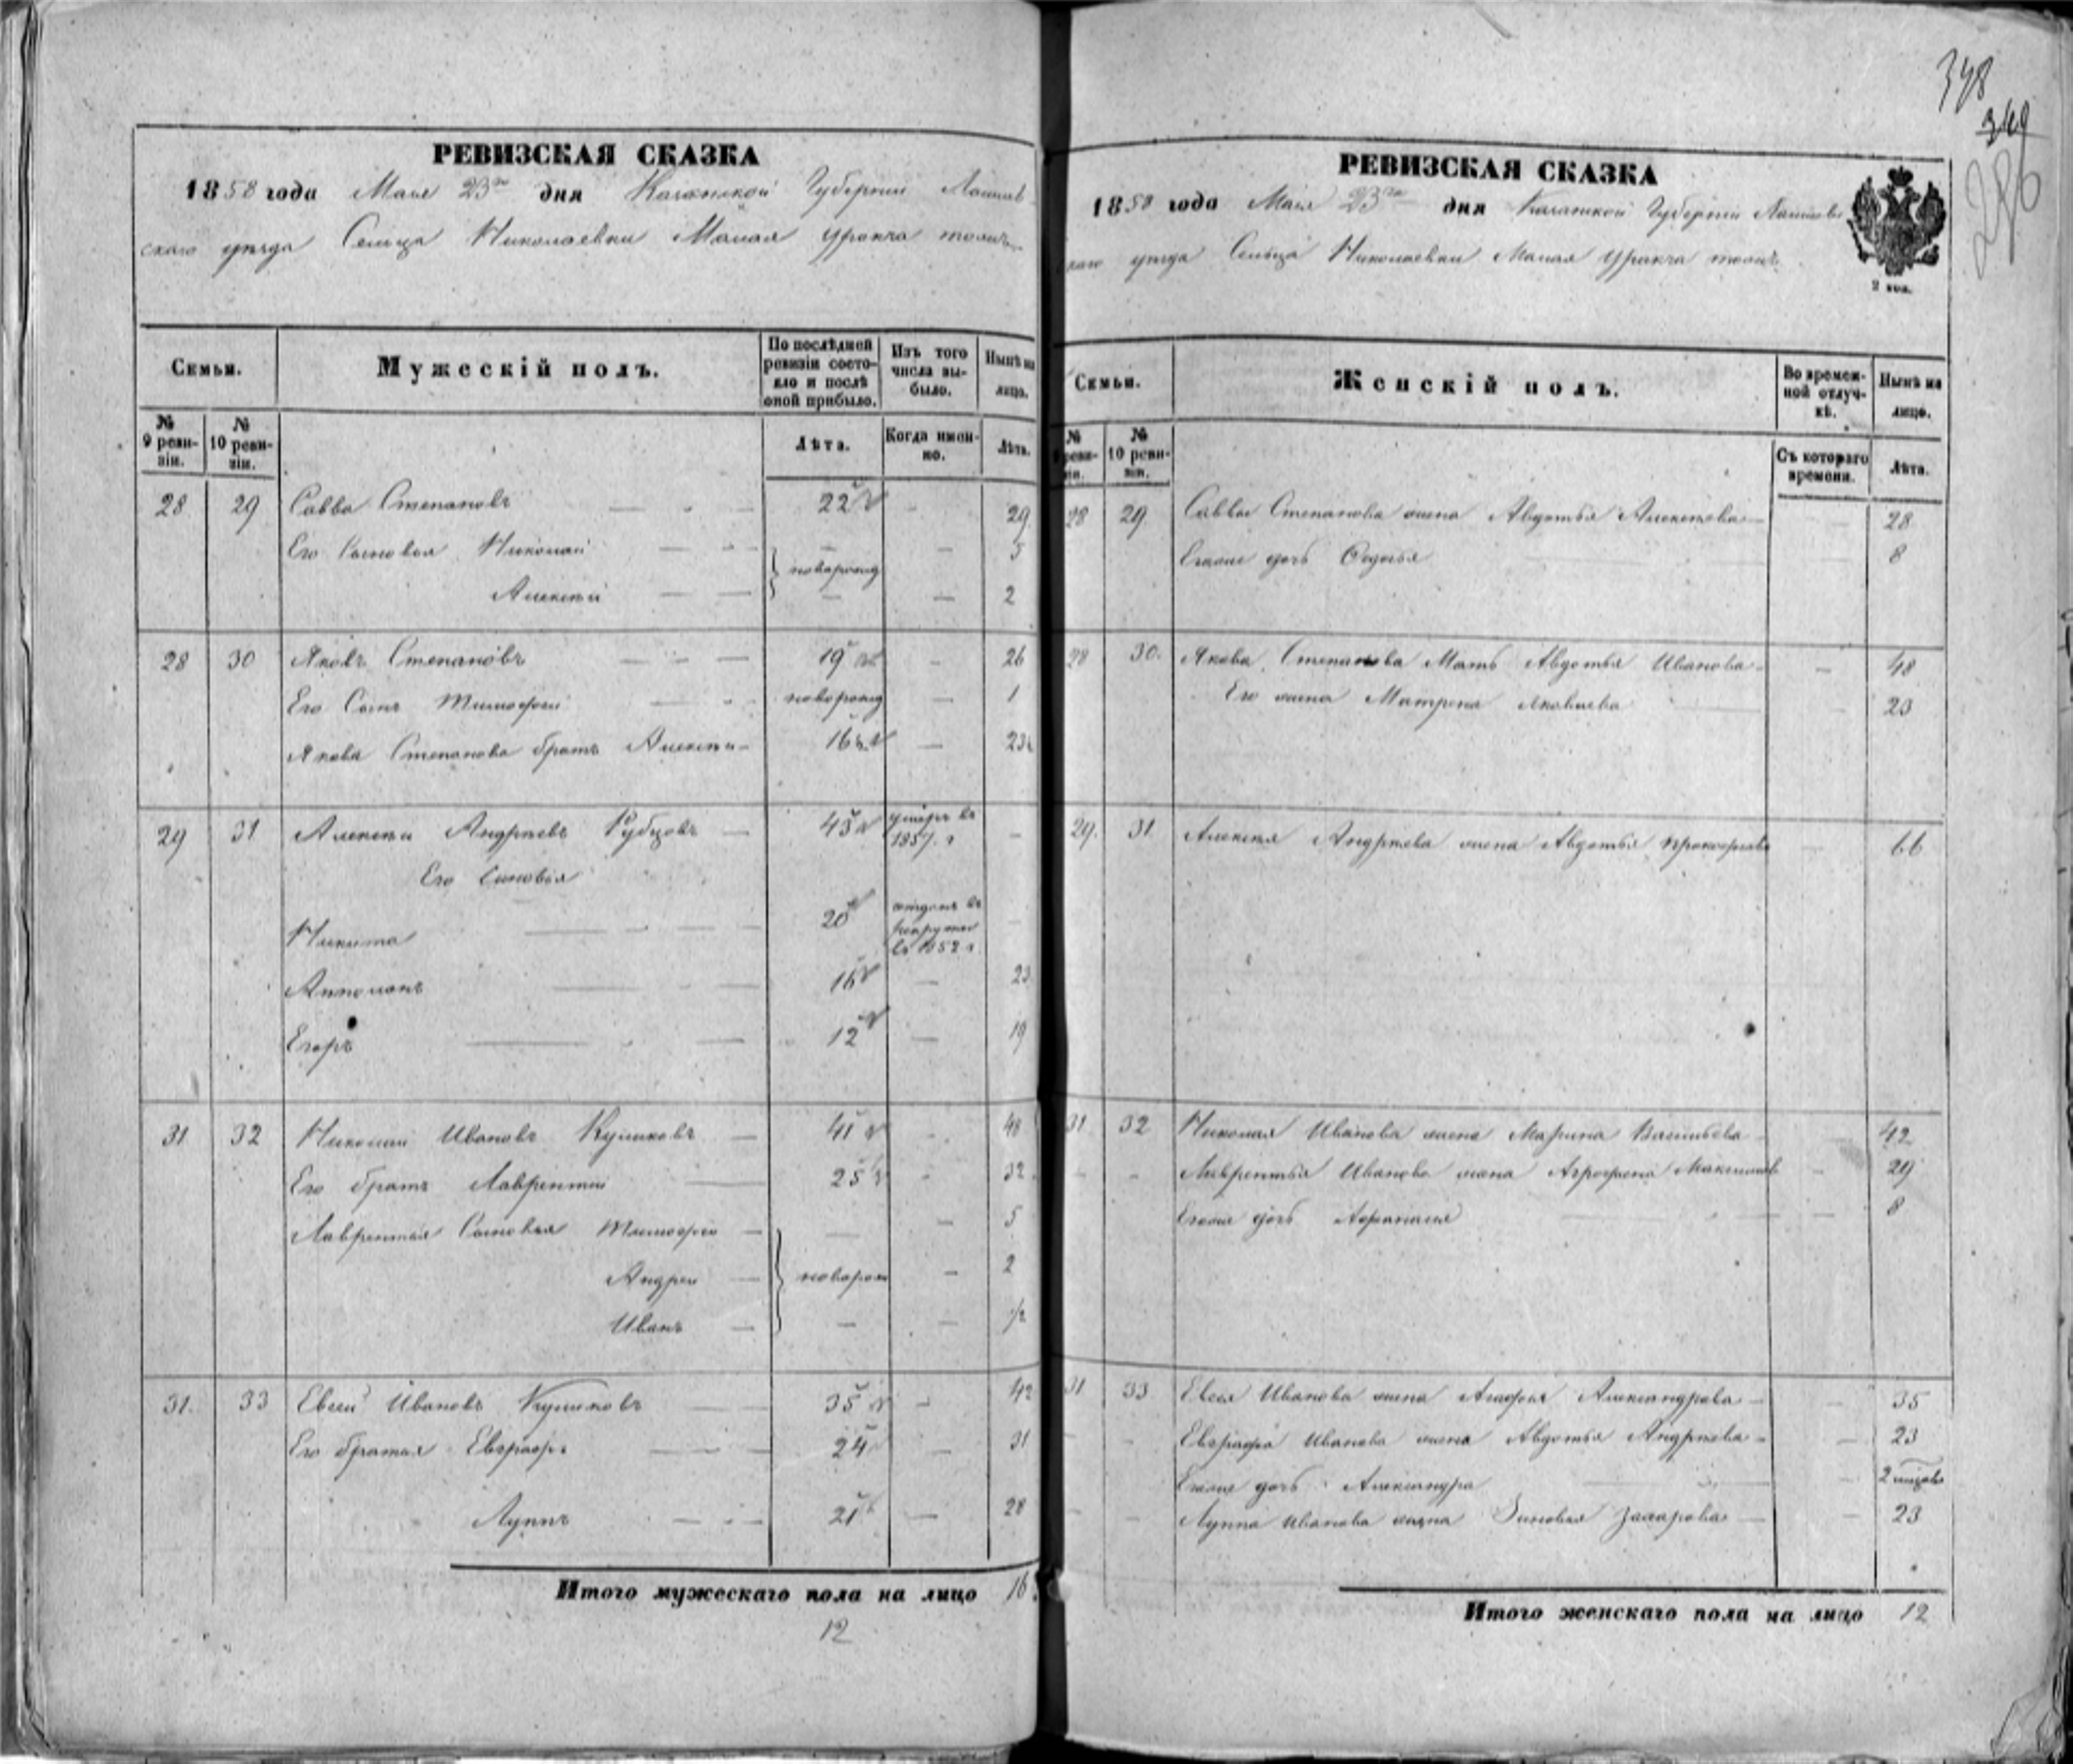 РЕВИЗСКАЯ СКАЗКА
1858 года Мая 23го дня Казанской Губернии Лаишев
скаго уезда Сельца Николаевки Малая Уракча тожъ
Семьи.
Мужескій полъ.
По послѣдней ревизіи состояло и послѣ оной прибыло.
Изъ того числа выбыло.
Нынѣ на лицо.
№ 9 ревизіи.
№ 10 ревизіи.
Лѣта.
Когда именно.
Лѣта.
28 29 Савва Степановъ — 22 - 29
Его Сыновья Николай — — — 5
новорожд
Алексѣй — — — 2
28 30 Яковъ Степановъ — 19 - 26
Его Сынъ Тимофей — новорожд — 1
Якова Степанова братъ Алексѣй — 16 — 23
29 31 Алексѣй Андреевъ Рубцовъ — 45 умеръ въ 1857. г —
Его Сыновья
Никита — 20 отданъ въ рекруты въ 1852 г. —
Апполонъ — 16 — 23
Егоръ — 12 — 19
31 32 Николай Ивановъ Кушаковъ — 41 - 48
Его братъ Лаврентий — 25 - 32
Лаврентия Сыновья Тимофей — — — 5
Андрей — новорож — 2
Иванъ — — — 1/2
31. 33 Евсей Ивановъ Кушаковъ — 35 - 42
Его братья Евграфъ — 24 — 31
Луппъ — 21 — 28
Итого мужескаго пола на лицо 16
12
348
349
286
РЕВИЗСКАЯ СКАЗКА
1858 года Мая 23го дня Казанской Губернии Лаишев
скаго уезда Сельца Николаевки Малая Уракча тожъ
2 коп.
Семьи.
Женскій полъ.
Во временной отлучкѣ.
Нынѣ на лицо.
№ 9 ревизіи.
№ 10 ревизіи.
Съ котораго времени.
Лѣта.
28 29 Саввы Степанова жена Авдотья Алексеева — 28
Егоже дочь Федосья 8
28 30. Якова Степанова Мать Авдотья Иванова - — 48
Его жена Матрена Яковлева 23
29. 31 Алексея Андреева жена Авдотья Прокофьева 66
31 32 Николая Иванова жена Марина Васильева - 42
- - Лаврентья Иванова жена Аграфена Максимов - 29
Егоже дочь Афанасия — 8
31 33 Евсея Иванова жена Агафья Александрова — 35
- - Евграфа Иванова жена Авдотья Андреева - — 23
Егоже дочь Александра — 2
- - Луппа Иванова жена Зиновья Захарова — 23
Итого женскаго пола на лицо 12